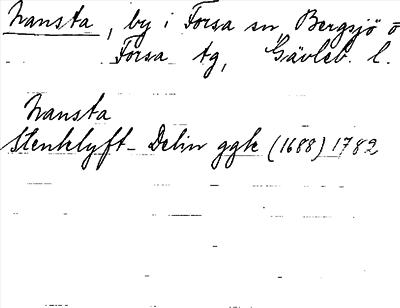 Nansta, by i Forsa sn Bergsjö o
Forsa tg, Gävleb. l.
Nansta
Stenklyft- Delin ggk (1688) 1782